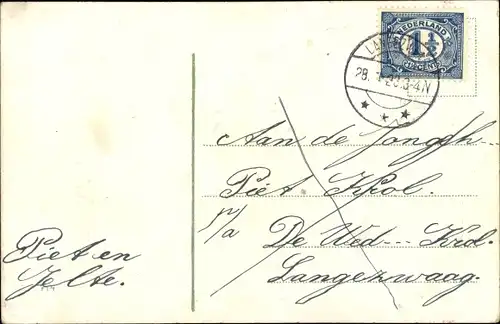 NEDERLAND
1½
CENT
LANGEZW
28.
20.3-4N
Aan de Jongeh---
Piet Krol.
p/a De Wed--- Krol.
Langezwaag.
Piet en
Jelte.